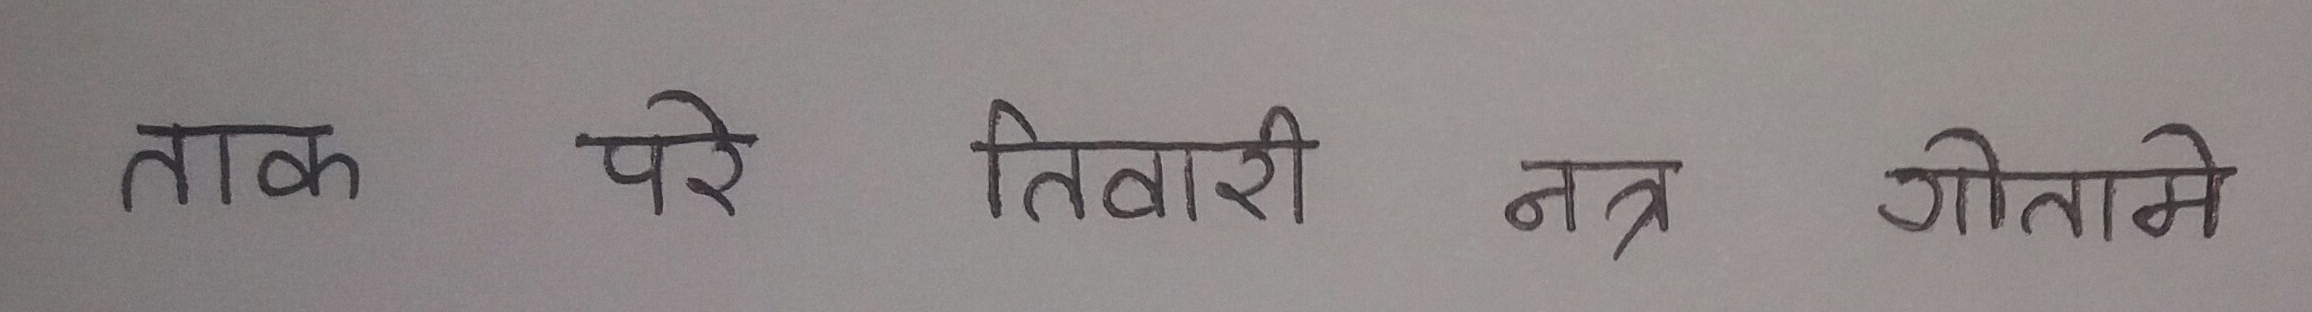 ताक परे तिवारी नत्र गोतामे